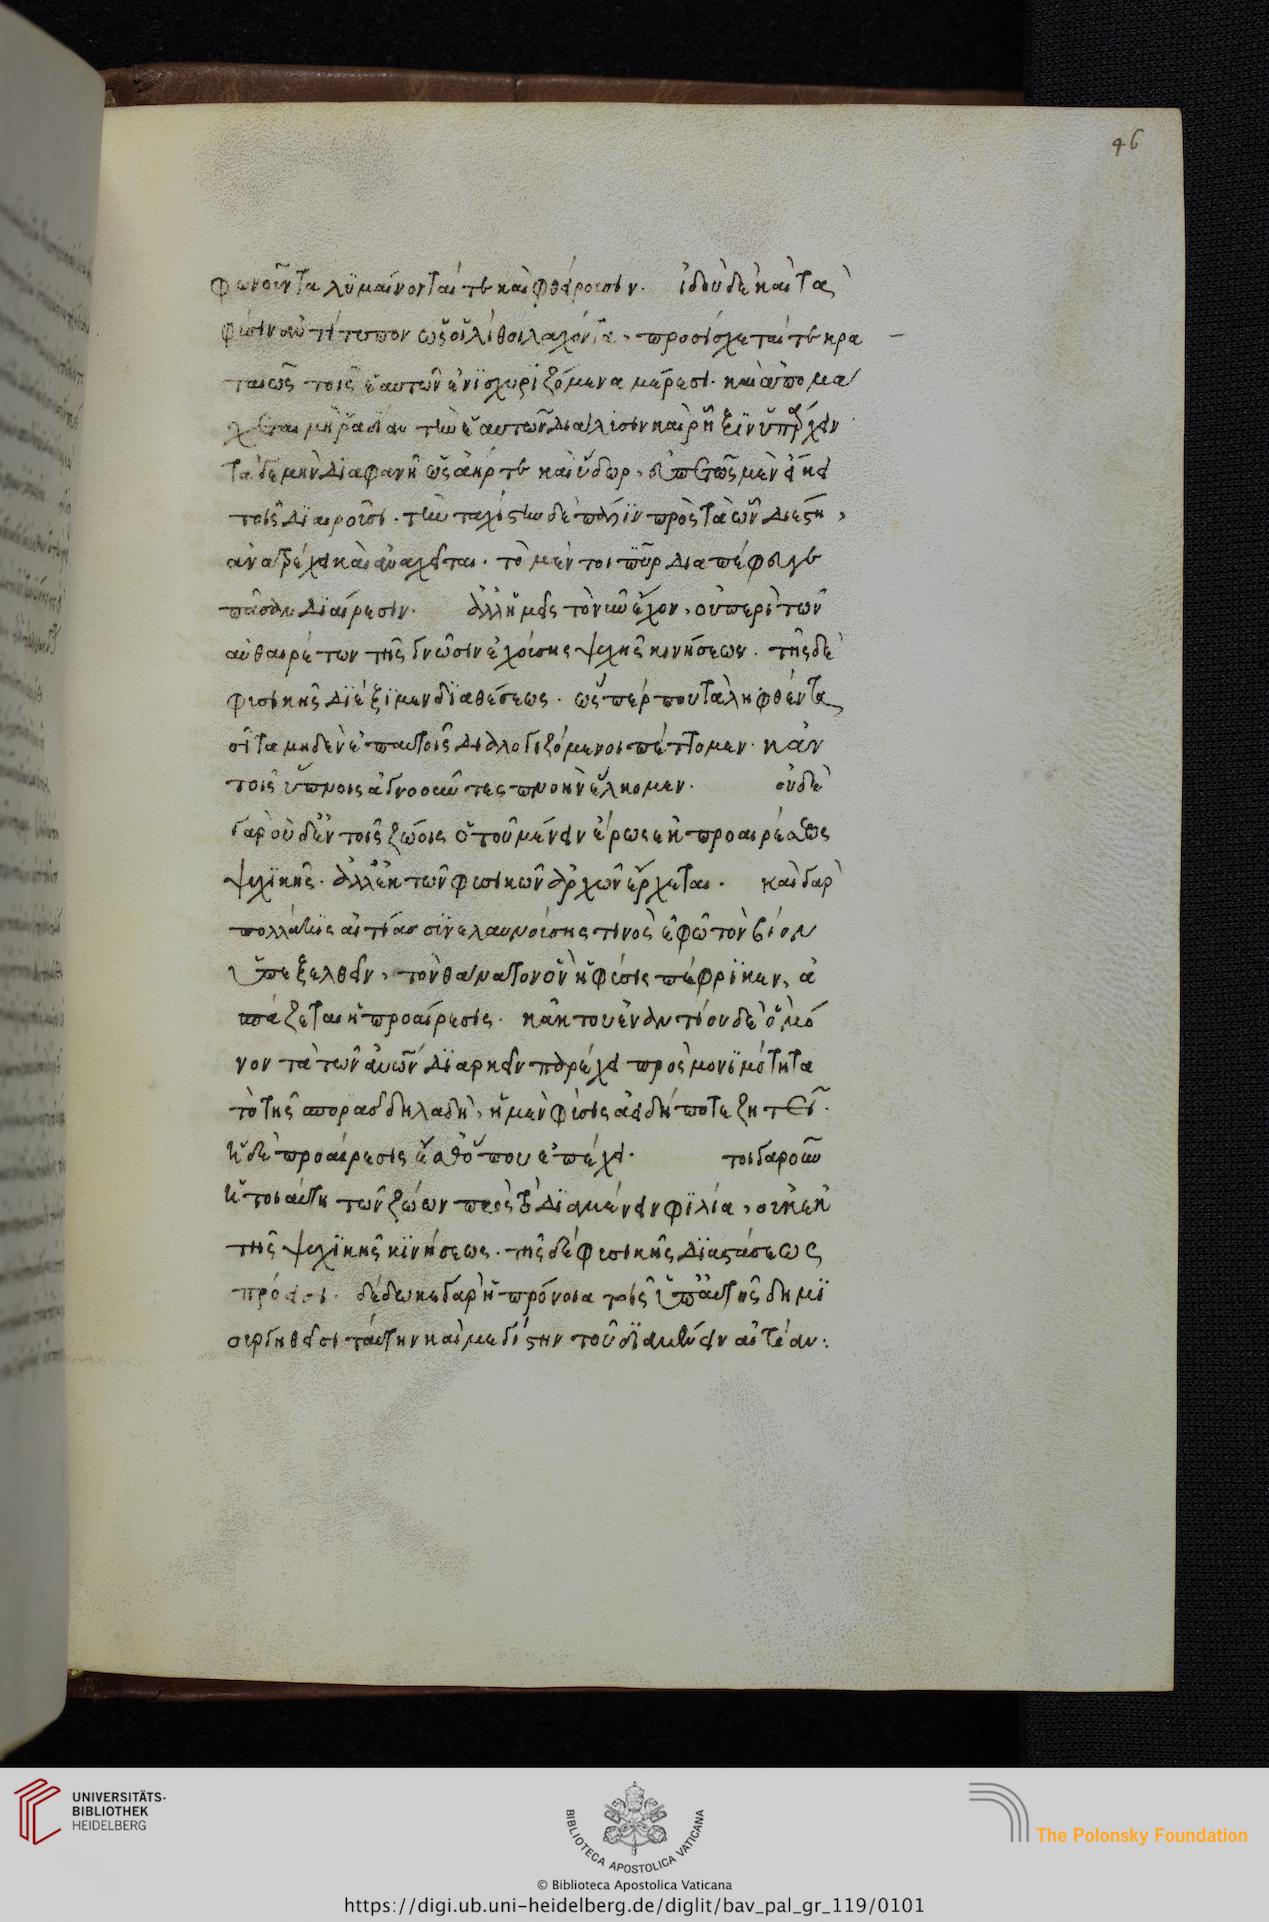 46
φωνοῦντα λυμαίνονταί τε καὶ φθείρουσιν. ἰδοὺ δὲ καὶ τὰ
φύσιν ἀντίτυπον ὡς οἱ λίθοι λαχόντα, προσίσχεταί τε κρα
ταιῶς τοῖς ἑαυτῶν ἐνισχυριζόμενα μέρεσι. καὶ ἀπομά
χεται μὴ ῥαδίαν τὴν ἑαυτῶν διάλυσιν καὶ ῥῆξιν ὑπάρχειν
τὰ δέ μὴν διαφανῆ ὡς ἀήρ τε καὶ ὕδωρ, εὐπετῶς μὲν εἴκει
τοῖς διαιροῦσι. τὴν ταχίστην δὲ πάλιν πρὸς τὰ ὧν διέστη,
ἀνατρέχει καὶ ἀναχεῖται. τὸ μέντοι πῦρ διαπέφευγε
πᾶσαν διαίρεσιν. ἀλλ ἡμεῖς τὸν νῦν ἔχον, οὐ περὶ τῶν
αὐθαιρέτων τῆς γνῶσιν ἐχούσης ψυχῆς κινήσεων. τῆς δὲ
φυσικῆς διέξιμεν διαθέσεως. ὥσπέρ που τὰ ληφθέντα
σῖτα μηδὲν ἐπ αὐτοῖς διαλογιζόμενοι πέττομεν. κἀν
τοῖς ὕπνοις ἀγνοοῦντες πνοὴν ἕλκομεν. οὐδὲ
γὰρ οὐδὲν τοῖς ζώοις ὁ τοῦ μένειν ἔρως ἐκ προαιρέσεως
ψυχικῆς. ἀλλ ἐκ τῶν φυσικῶν ἀρχῶν ἔρχεται. καὶ γὰρ
πολλάκις αἰτίας συνελαυνούσης τινὸς ἐφ ᾧ τὸν βίον
ὑπεξελθεῖν, τὸν θάνατον ὃν ἡ φύσις πέφρικεν, ἀ
σπάζεται ἡ προαίρεσις. κἀκ τοῦ ἐναντίου δὲ ὃ μό
νον τὰ τῶν ἀνῶν διαρκεῖν παρέχει πρὸς μονιμότητα
τὸ τῆς σπορᾶς δηλαδὴ, ἡ μὲν φύσις ἀεὶ δήποτε ζητεῖ.
ἡ δὲ προαίρεσις ἔσθ ὅπου ἐπέχει. τοιγαροῦν
ἡ τοιαύτη τῶν ζώων πρὸς τὸ διαμένειν φιλία, οὐκ ἐκ
τῆς ψυχικῆς κινήσεως. τῆς δὲ φυσικῆς διαστάσεως
πρόεισι. δέδωκε γὰρ ἡ πρόνοια τοῖς ὑπ αὐτῆς δημι
ουργηθεῖσι ταύτην καὶ μεγίστην τοῦ διαμένειν αἰτίαν:
UNIVERSITÄTS-
BIBLIOTHEK
HEIDELBERG
BIBLIOTECA APOSTOLICA VATICANA
The Polonsky Foundation
© Biblioteca Apostolica Vaticana
https://digi.ub.uni-heidelberg.de/diglit/bav_pal_gr_119/0101